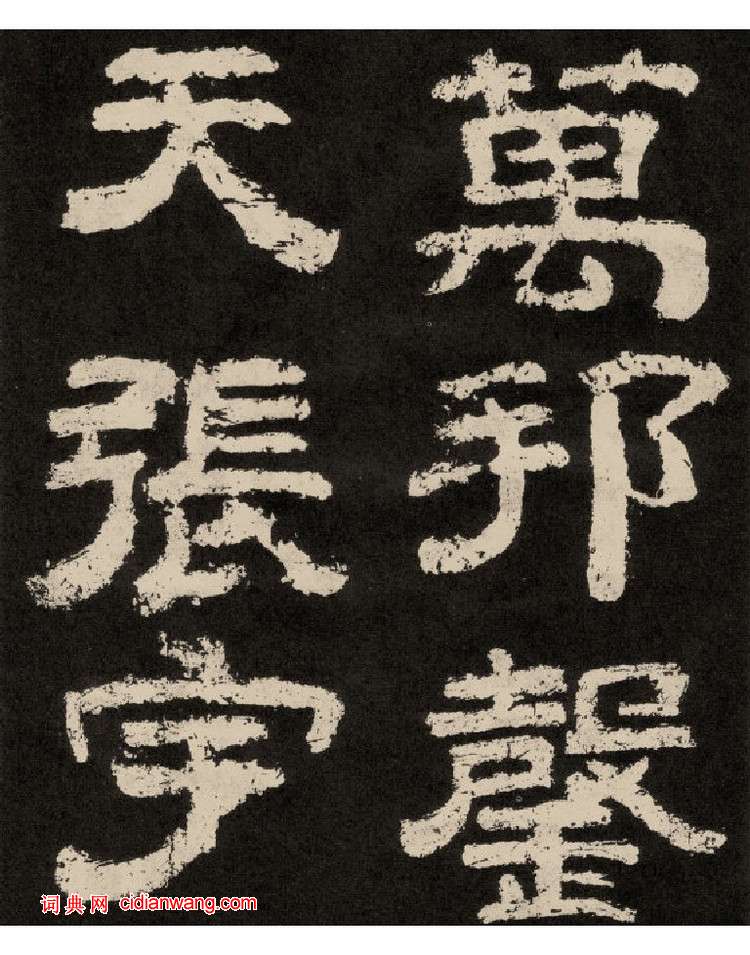 萬邦罄
天張宇
词典网 cidianwang.com